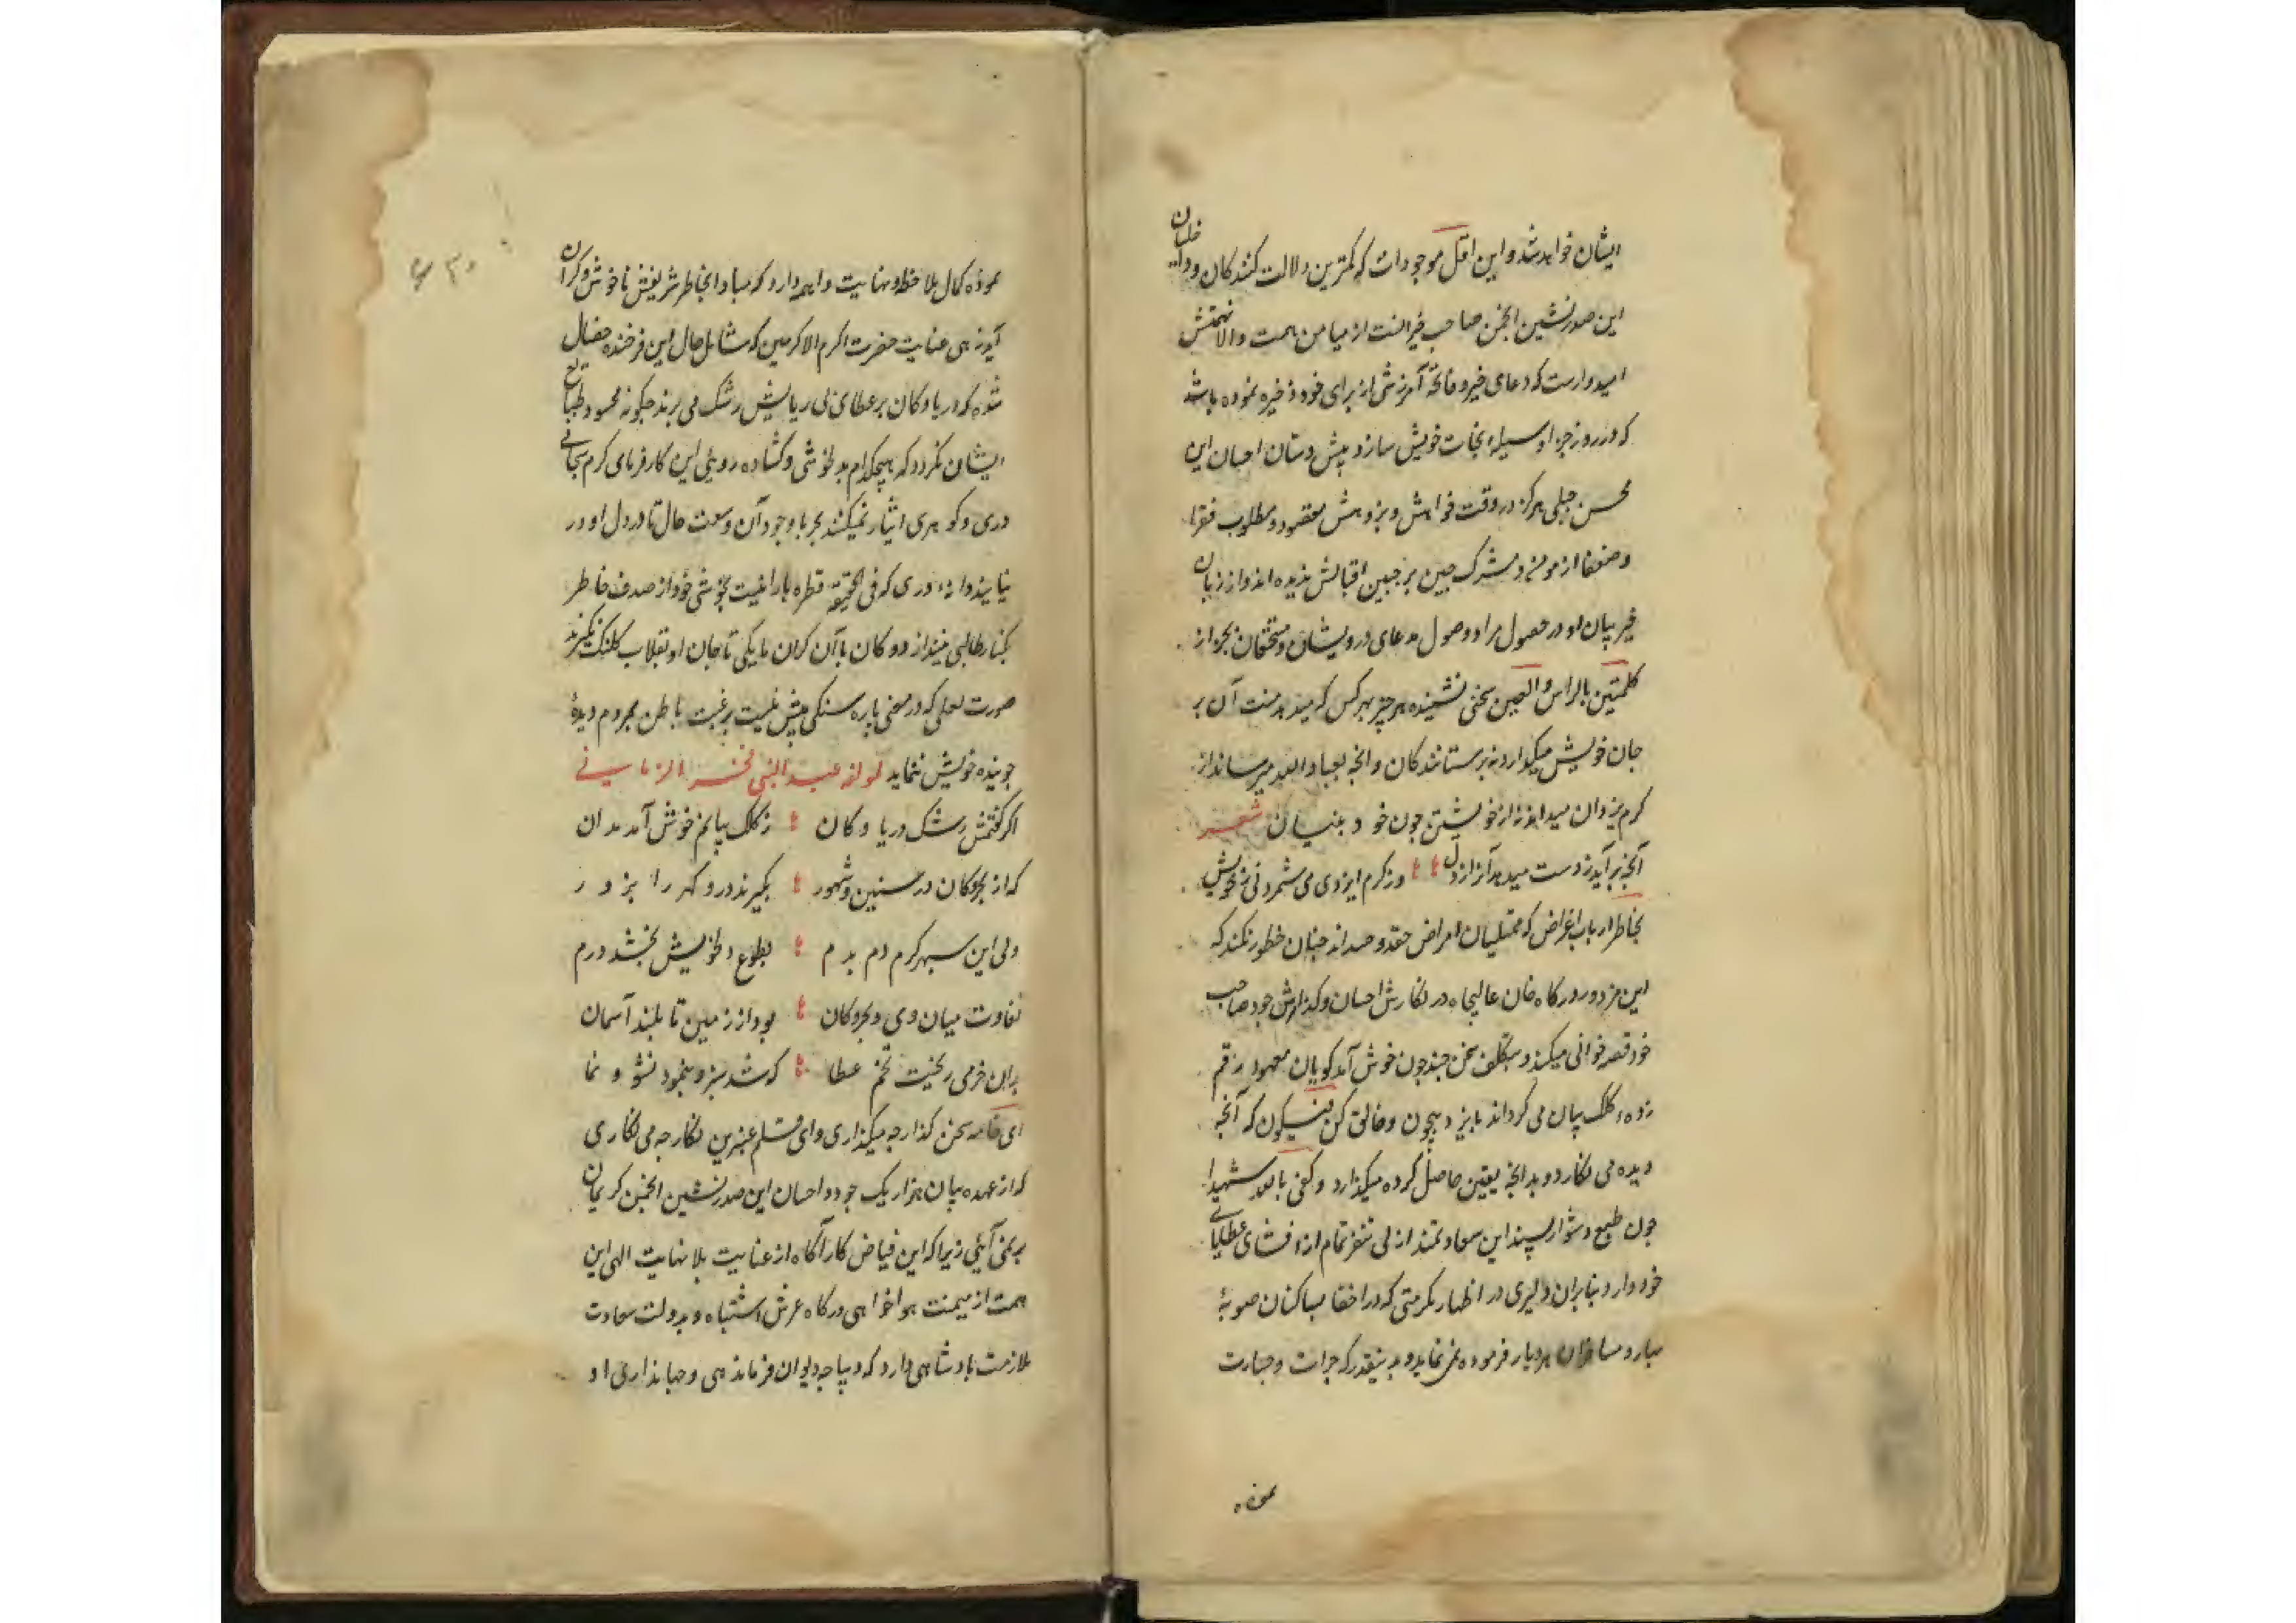 ایشان خواهد شد و این اقل موجودات که کمترین دلالت کنندکان و داخلان
این صدرنشین انجمن صاحب خیرانست از میامن همت والا نهمتش
امیدوارست که دعای خیر و فاتحهٔ آمرزشی از برای خود ذخیره نموده باشد
که در روز جزا وسیلهٔ نجات خویش سازد پیش دستان احسان این
محسن جبلی هرکز در وقت خواهش و پژوهش مقصود و مطلوب فقرا
و ضعفا از مومن و مشرک چین بر جبین اقبالش ندیده اند و از زبان
خیر بیان او در حصول مراد و وصول مدعای درویشان و مستحقان بجز از
کلمتین بالراس والعین سخنی نشنیده هر چیز بهر کس که میدهد منت آن بر
جان خویش میکذارد نه بر ستانندکان و انچه بعباد الله میرساند از
کرم یزدان میداند نه از خویشتن چون خود بنیان شعر
آنچه برآید ز دست میدهد آنرا ز دل ور کرم ایزدی می شمرد نی ز خویش
بخاطر ارباب اغراض که ممتلیان امراض حقد و حسد اند چنان خطور نکند که
این مزدور درکاه خان عالیجاه در نکارش احسان و کذارش جود صاحب
خود قصه خوانی میکند و بتکلف سخن چند چون خوش آمد کویان معهود رقم
زدهٔ کلک بیان می کرداند بایزد بیچون و خالق کن فیکون که آنچه
دیده می نکارد و بدانچه یقین حاصل کرده میکذارد و کفی بالله شهیدا
چون طبع دشوار پسند این سعادتمند ازلی تنفر تمام از افشای عطایای
خود دارد بنابران دلیری در اظهار مکرمتی که در اخفا بساکنان صوبهٔ
بهار و مسافران هر دیار فرموده نمی نماید و بدینقدر که جرات و جسارت
نموده
نموده کمال ملاحظه و نهایت واهمه دارد که مبادا بخاطر شریفش ناخوش و کران
آید زهی عنایت حضرت اکرم الاکرمین که شامل حال این فرخنده خصال
شده که دریا و کان بر عطای بی ریایش رشک می برند چکونه محسود طبایع
ایشان نکردد که هیچکدام بدلخوشی و کشاده روئی این کارفرمای کرم سبحانی
دری و کوهری ایثار نمیکنند بحر با وجود آن وسعت حال تا در دل او در
نیایند دانهٔ دری که فی الحقیقه قطره بارانیست بخوشی خود از صدف خاطر
بکنار طالبی نیندازد و کان با آن کران مایکی تا جان او بقلاب کلنک نکیرند
صورت لعلی که در معنی پاره سنکی بیش نیست برغبت باطن بمردم دیدهٔ
جوینده خویش ننماید لمولفه عبد النبی فخر الزمانی
اکر کفتمش رشک دریا و کان ز کلک بیانم خوش آمد مدان
که از بحر و کان در سنین و شهور بکیرند در و کهر را بزور
ولی این سپهر کرم دم بدم بطوع دل خویش بخشد درم
تفاوت میان وی و بحر و کان بود از زمین تا بلند آسمان
بران خرمی ریخت تخم عطا که شد سبز و بنمود نشو و نما
ای خامه سخن کذار چه میکذاری و ای قلم عنبرین نکار چه می نکاری
که از عهده بیان هزار یک جود و احسان این صدرنشین انجمن کریمان
بر نمی آئی زیرا که این فیاض کارآکاه از عنایت بلانهایت الهی این
همت از میمنت هواخواهی درکاه عرش اشتباه و بدولت سعادت
ملازمت بادشاهی دارد که دیباچه دیوان فرماندهی و جهانداری او